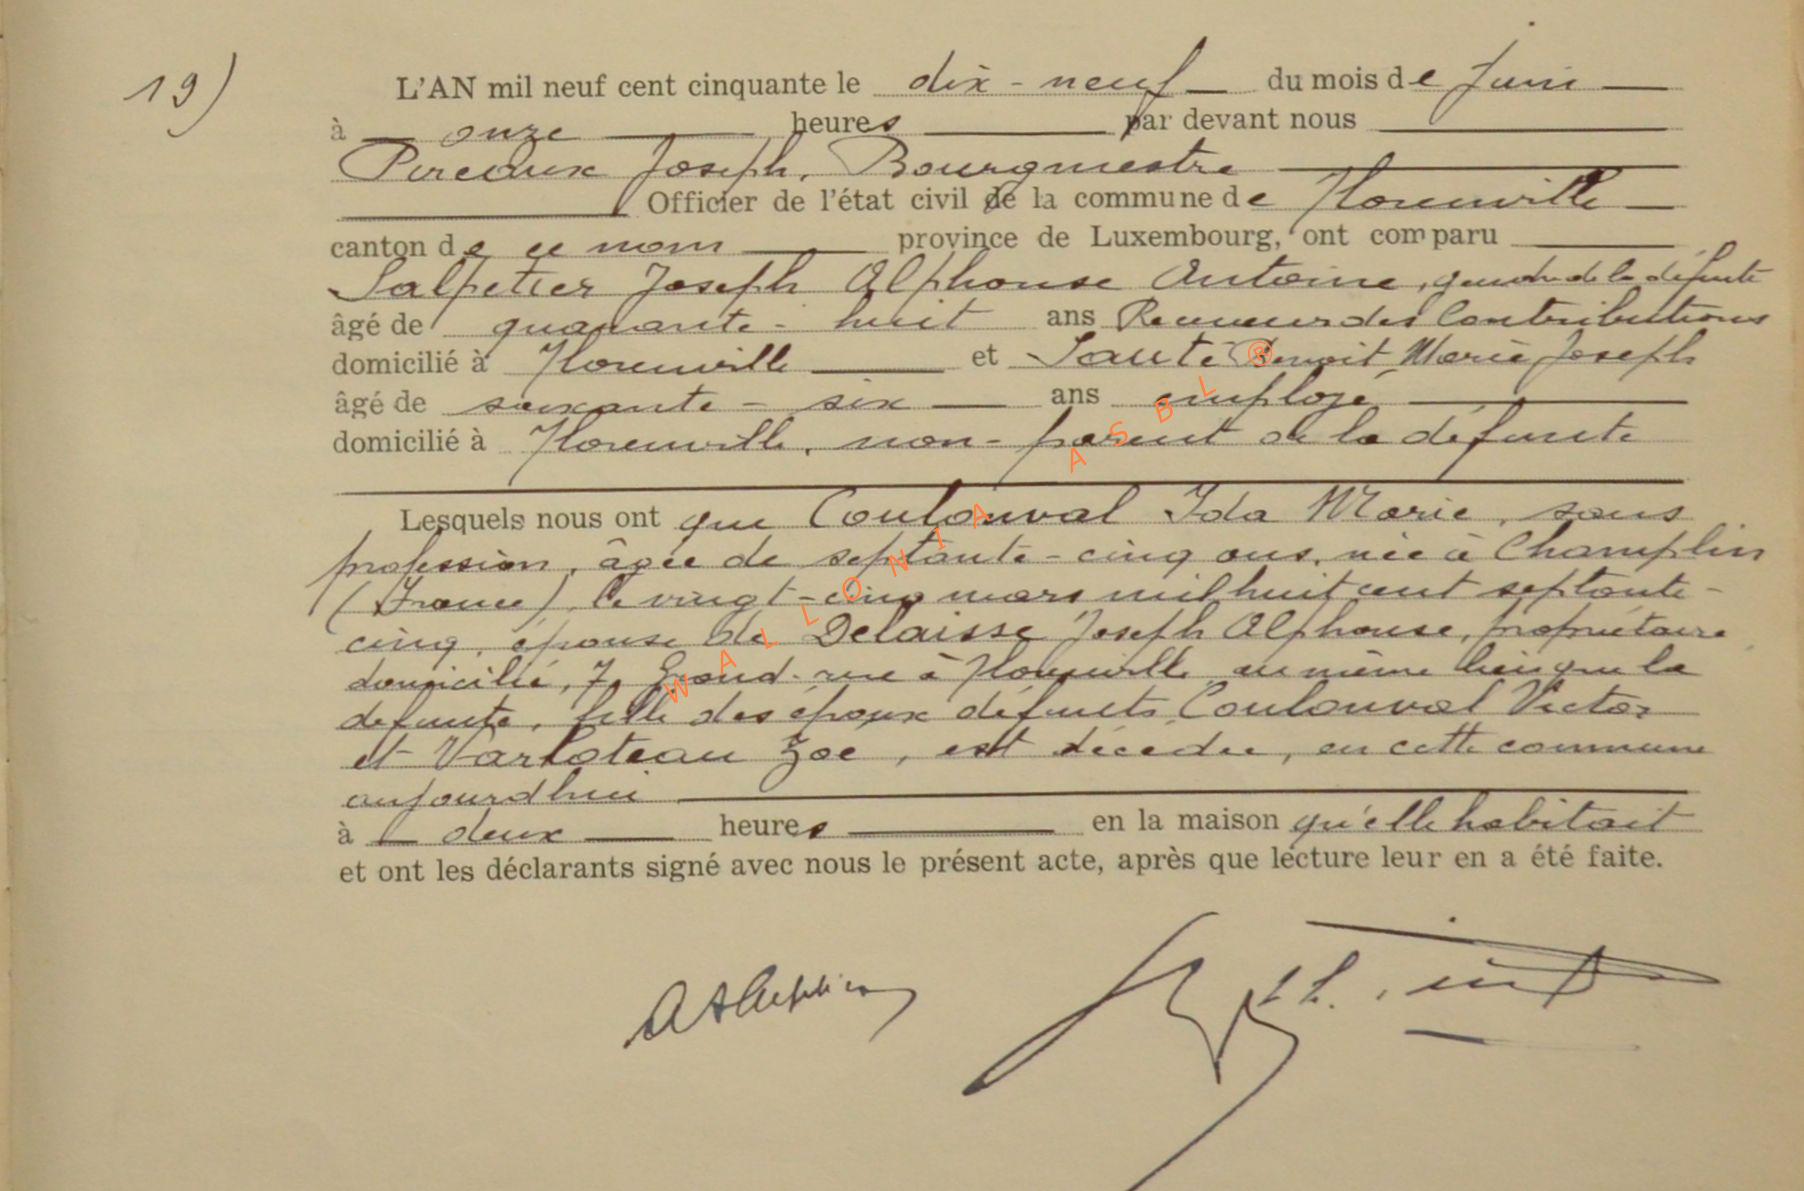 19)
L'AN mil neuf cent cinquante le dix-neuf du mois de Juin
à onze heures par devant nous
Pireaux Joseph, Bourgmestre
Officier de l'état civil de la commune de Florenville
canton de ce nom province de Luxembourg, ont comparu
Salpetier Joseph Alphonse Antoine, gendre de la défunte
âgé de quarante-huit ans Receveur des Contributions
domicilié à Florenville et Benoit Marie Joseph
âgé de soixante-six ans employé
domicilié à Florenville, non-parent de la défunte
Lesquels nous ont que Coulonval Ida Marie, sans
profession, âgée de septante-cinq ans, née à Champlin
(France), le vingt-cinq mars mil huit cent septante-
cinq, épouse de Delaisse Joseph Alphonse, propriétaire
domicilié, 7, Grand-rue à Florenville au même lieu que la
défunte, fille des époux défunts Coulonval Victor
et Varloteau Zoé, est décédée, en cette commune
aujourd'hui
à deux heures en la maison qu'elle habitait
et ont les déclarants signé avec nous le présent acte, après que lecture leur en a été faite.
WALLONIA ASBL ®